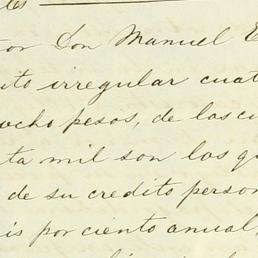 tor Don Manuel E
ito irregular cuat
ocho pesos, de los cu
ta mil son los qu
de su credito person
is por ciento anual,